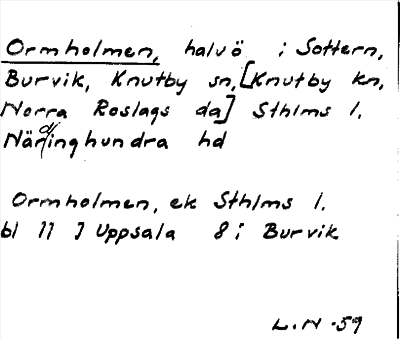 Ormholmen, halvö i Sottern,
Burvik, Knutby sn, [Knutby kn,
Norra Roslags da] Sthlms l.
Närdinghundra hd
Ormholmen, ek Sthlms l.
bl 11 J Uppsala 8 i Burvik
L.N -59